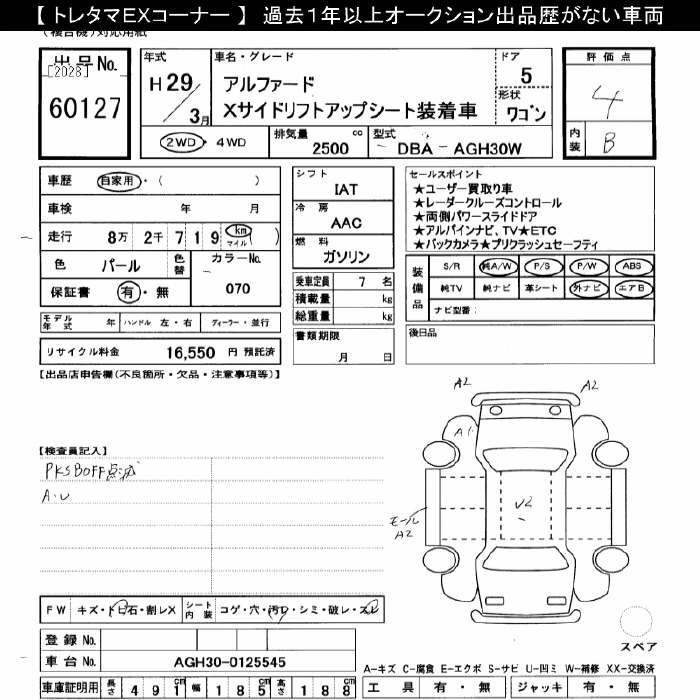 【 トレタマEXコーナー 】 過去1年以上オークション出品歴がない車両
出品No.
[2028]
60127
年式
H 29 / 3月
車名・グレード
アルファード
Xサイドリフトアップシート装着車
ドア
5
形状
ワゴン
2WD ・ 4WD
排気量 2500 cc
型式 DBA - AGH30W
評価点
4
内装 B
車歴 自家用・( )
車検 年 月
走行 8万 2千 7 1 9 km マイル ( )
色 パール 色替 カラーNo. 070
保証書 有・無
モデル年式 年 ハンドル 左・右 ディーラー・並行
リサイクル料金 16,550 円 預託済
シフト
IAT
冷房
AAC
燃料
ガソリン
乗車定員 7 名
積載量 kg
総重量 kg
書類期限
月 日
セールスポイント
★ユーザー買取り車
★レーダークルーズコントロール
★両側パワースライドドア
★アルパインナビ、TV★ETC
★バックカメラ★プリクラッシュセーフティ
装備品
S/R 純A/W P/S P/W ABS
純TV 純ナビ 革シート 外ナビ エアB
ナビ型番:
後日品
【出品店申告欄(不良箇所・欠品・注意事項等)】
【検査員記入】
PKSBOFF点滅
A・U
A2 A2
A1
U2
モール
A2
スペア
FW キズ・トビ石・割レX シート内装 コゲ・穴・汚レ・シミ・破レ・スレ
登録 No.
車台 No. AGH30-0125545
車庫証明用 長さ 4 9 1 cm 幅 1 8 5 cm 高さ 1 8 8 cm
A-キズ C-腐食 E-エクボ S-サビ U-凹ミ W-補修 XX-交換済
工具 有・無 ジャッキ 有・無